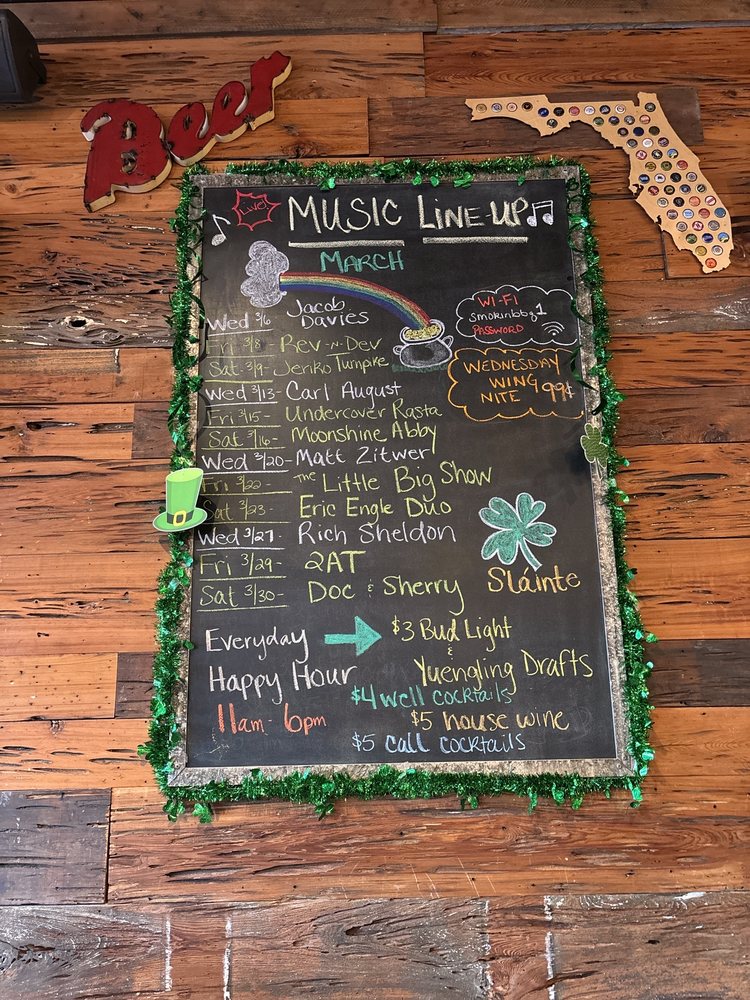 Beer
Live!
MUSIC LINE-UP
MARCH
Wed 3/6 Jacob Davies
Fri 3/8- Rev-N-Dev
Sat 3/9- Jeriko Turnpike
Wed 3/13- Carl August
Fri 3/15- Undercover Rasta
Sat 3/16- Moonshine Abby
Wed 3/20- Matt Zitwer
Fri 3/22- The Little Big Show
Sat 3/23- Eric Engle Duo
Wed 3/27- Rich Sheldon
Fri 3/29- 2AT
Sat 3/30- Doc & Sherry
WI-FI
smokinbbq1
PASSWORD
WEDNESDAY
WING
NITE 99¢
Sláinte
Everyday
Happy Hour
11am-6pm
$3 Bud Light
&
Yuengling Drafts
$4 well cocktails
$5 house wine
$5 call cocktails